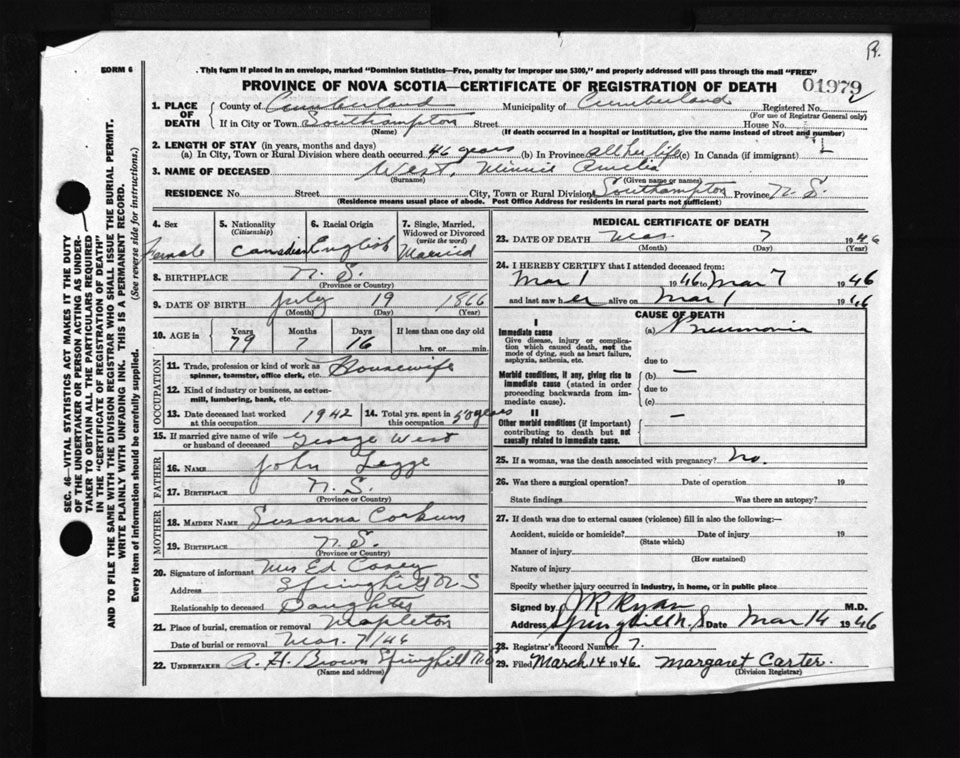 R.
FORM 6
. This form if placed in an envelope, marked "Dominion Statistics—Free, penalty for improper use $300," and properly addressed will pass through the mail "FREE"
PROVINCE OF NOVA SCOTIA—CERTIFICATE OF REGISTRATION OF DEATH 01979
1. PLACE OF DEATH { County of Cumberland Municipality of Cumberland Registered No.
(For use of Registrar General only)
If in City or Town Southampton Street House No.
(Name) (If death occurred in a hospital or institution, give the name instead of street and number)
2. LENGTH OF STAY (in years, months and days)
(a) In City, Town or Rural Division where death occurred 46 years (b) In Province all her life (c) In Canada (if immigrant)
3. NAME OF DECEASED West, Minnie Amelia
(Surname) (Given name or names)
RESIDENCE No. Street City, Town or Rural Division Southampton Province N. S.
(Residence means usual place of abode. Post Office Address for residents in rural parts not sufficient)
4. Sex Female
5. Nationality (Citizenship) Canadian
6. Racial Origin English
7. Single, Married, Widowed or Divorced (write the word) Married
8. BIRTHPLACE N. S.
(Province or Country)
9. DATE OF BIRTH July 19 1866
(Month) (Day) (Year)
10. AGE in { Years 79 Months 7 Days 16 If less than one day old
hrs. or min.
OCCUPATION
11. Trade, profession or kind of work as spinner, teamster, office clerk, etc. Housewife
12. Kind of industry or business, as cotton-mill, lumbering, bank, etc.
13. Date deceased last worked at this occupation 1942
14. Total yrs. spent in this occupation 50 years
15. If married give name of wife or husband of deceased George West
FATHER
16. NAME John Legge
17. BIRTHPLACE N. S.
(Province or Country)
MOTHER
18. MAIDEN NAME Susanna Corkum
19. BIRTHPLACE N. S.
(Province or Country)
20. Signature of informant Mrs Ed Casey
Address Springhill N S
Relationship to deceased Daughter
21. Place of burial, cremation or removal Mapleton
Date of burial or removal Mar. 7/46
22. UNDERTAKER A. H. Brown Springhill N.S
(Name and address)
MEDICAL CERTIFICATE OF DEATH
23. DATE OF DEATH Mar. 7 1946
(Month) (Day)
24. I HEREBY CERTIFY that I attended deceased from:
Mar 1 1946 to Mar 7 1946
and last saw her alive on Mar 1 1946
CAUSE OF DEATH
I
Immediate cause (a) Pneumonia
Give disease, injury or complication which caused death, not the mode of dying, such as heart failure, asphyxia, asthenia, etc.
due to
Morbid conditions, if any, giving rise to immediate cause (stated in order proceeding backwards from immediate cause).
(b) —
due to
(c)
II
Other morbid conditions (if important) contributing to death but not causally related to immediate cause. —
25. If a woman, was the death associated with pregnancy? No.
26. Was there a surgical operation? Date of operation 19
State findings Was there an autopsy?
27. If death was due to external causes (violence) fill in also the following:—
Accident, suicide or homicide? Date of injury 19
(State which)
Manner of injury
(How sustained)
Nature of injury
Specify whether injury occurred in industry, in home, or in public place
Signed by J R Ryan M.D.
Address Springhill N. S Date Mar 14 1946
28. Registrar's Record Number 7.
29. Filed March 14 1946. Margaret Carter.
(Division Registrar)
SEC. 46—VITAL STATISTICS ACT MAKES IT THE DUTY
OF THE UNDERTAKER OR PERSON ACTING AS UNDERTAKER TO OBTAIN ALL THE PARTICULARS REQUIRED
IN THE "CERTIFICATE OF REGISTRATION OF DEATH"
AND TO FILE THE SAME WITH THE DIVISION REGISTRAR WHO SHALL ISSUE THE BURIAL PERMIT.
WRITE PLAINLY WITH UNFADING INK. THIS IS A PERMANENT RECORD.
Every item of information should be carefully supplied. (See reverse side for instructions.)